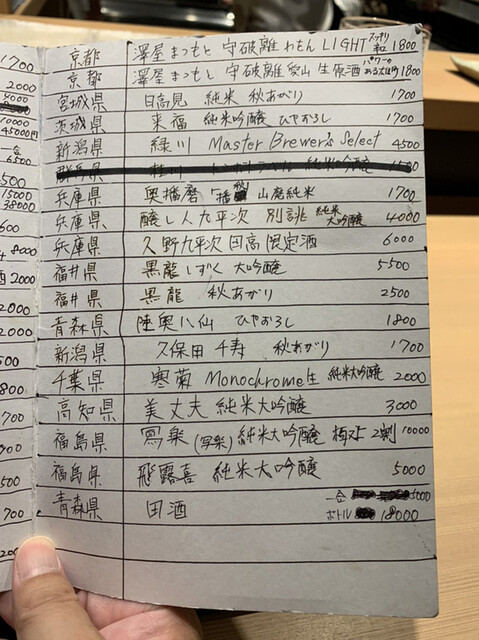 1700
2000
10000
45000円
一合
6500
500
15000
38000
600
8000
酒2000
2000
2000
500
800
700
900
500
700
200
京都 澤屋まつもと 守破離 わもん LIGHT 1800
京都 澤屋まつもと 守破離 愛山 生原酒 1800
宮城県 日高見 純米 秋あがり 1700
茨城県 来福 純米吟醸 ひやおろし 1700
新潟県 緑川 Master Brewer's Select 4500
兵庫県 奥播磨 山廃純米 1700
兵庫県 醸し人九平次 別誂 純米大吟醸 4000
兵庫県 久野九平次 田高 限定酒 6000
福井県 黒龍 しずく 大吟醸 5500
福井県 黒龍 秋あがり 2500
青森県 陸奥八仙 ひやおろし 1800
新潟県 久保田 千寿 秋あがり 1700
千葉県 寒菊 Monochrome生 純米大吟醸 2000
高知県 美丈夫 純米大吟醸 3000
福島県 寫楽 (写楽) 純米大吟醸 2割 10000
福島県 飛露喜 純米大吟醸 5000
青森県 田酒 一合 5000
ボトル 18000